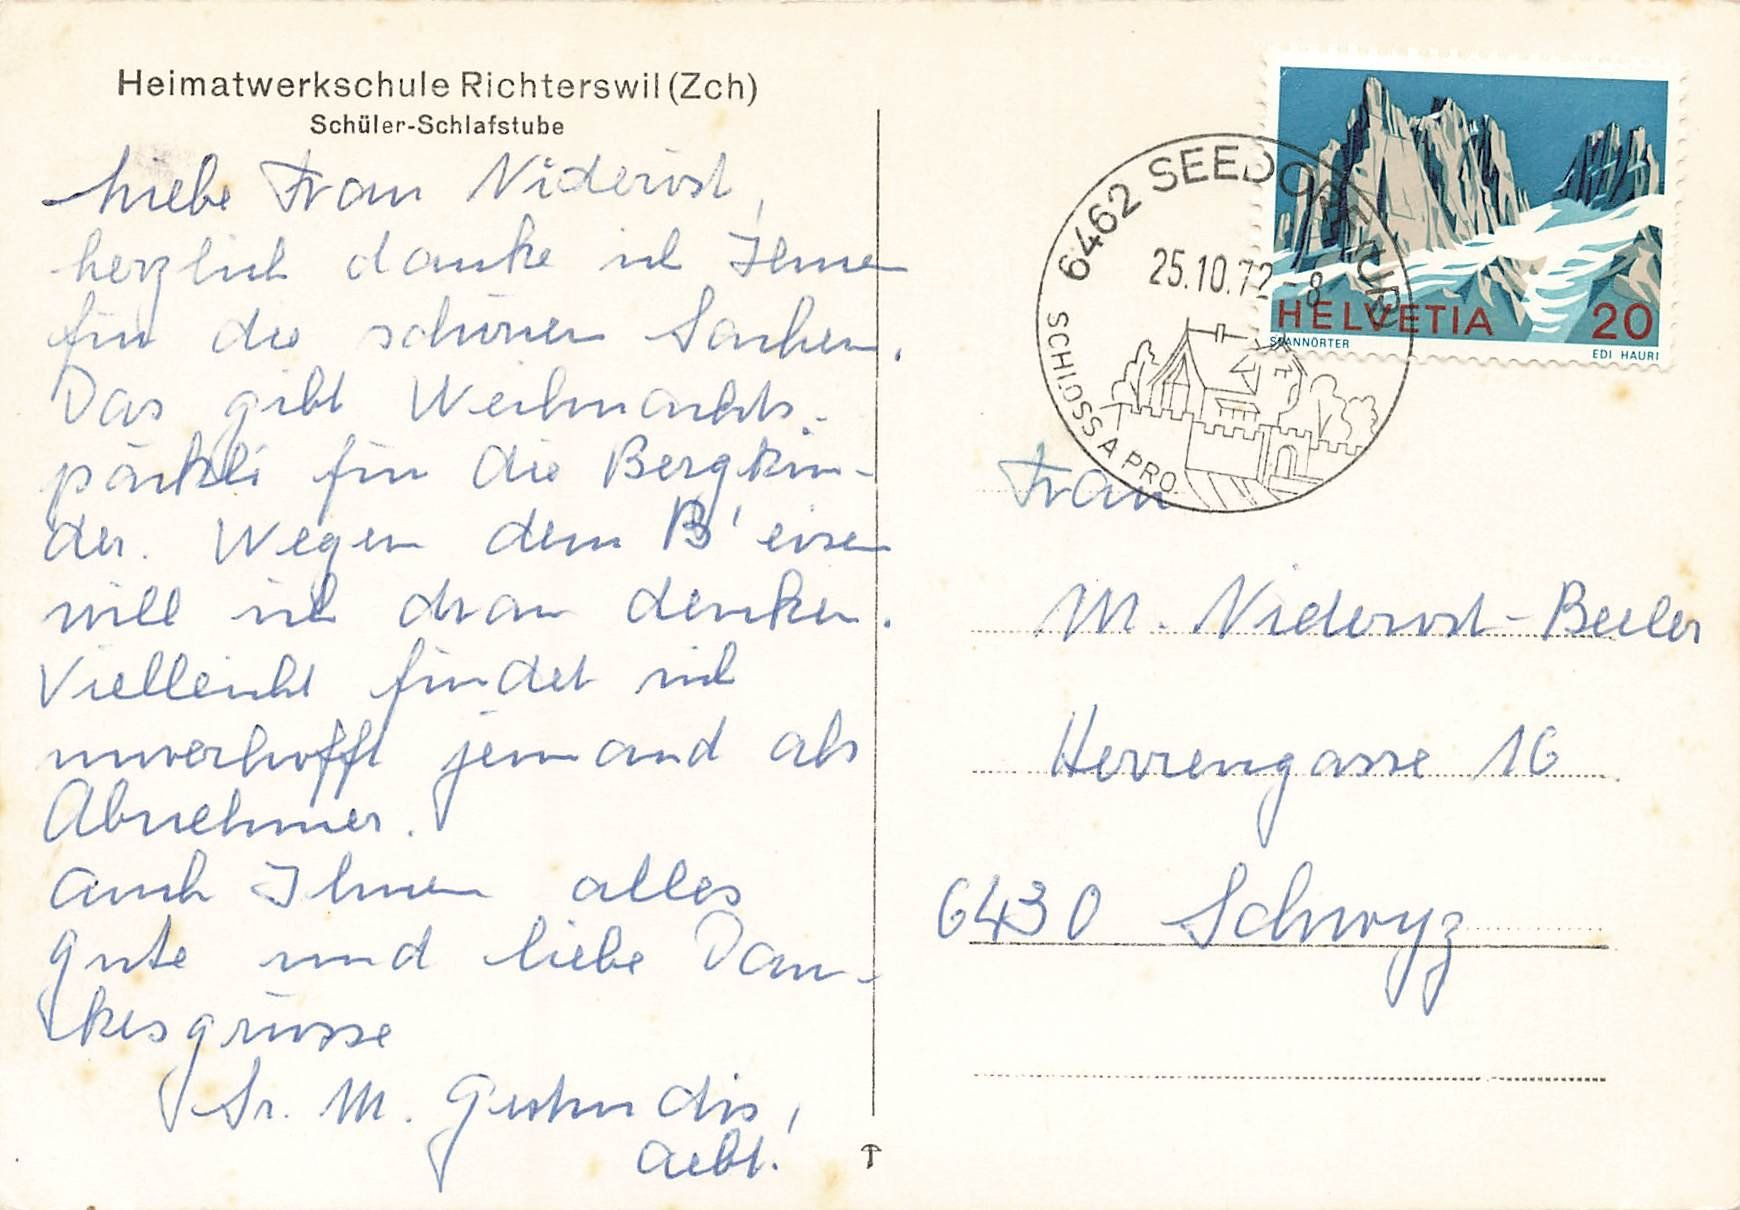 Heimatwerkschule Richterswil (Zch)
Schüler-Schlafstube
Liebe Frau Nideröst,
herzlich danke ich Ihnen
für die schönen Sachen.
Das gibt Weihnachts-
päckli für die Bergkin-
der. Wegen dem B'eisen
will ich dran denken.
Vielleicht findet sich
unverhofft jemand als
Abnehmer.
Auch Ihnen alles
gute und liebe Dan-
kesgrüsse
Sr. M.
aebt.
6462 SEEDORF UR
25.10.72-8
SCHLOSS A PRO
HELVETIA 20
SPANNÖRTER
EDI HAURI
Frau
M. Nideröst-Beeler
Herrengasse 16
6430 Schwyz